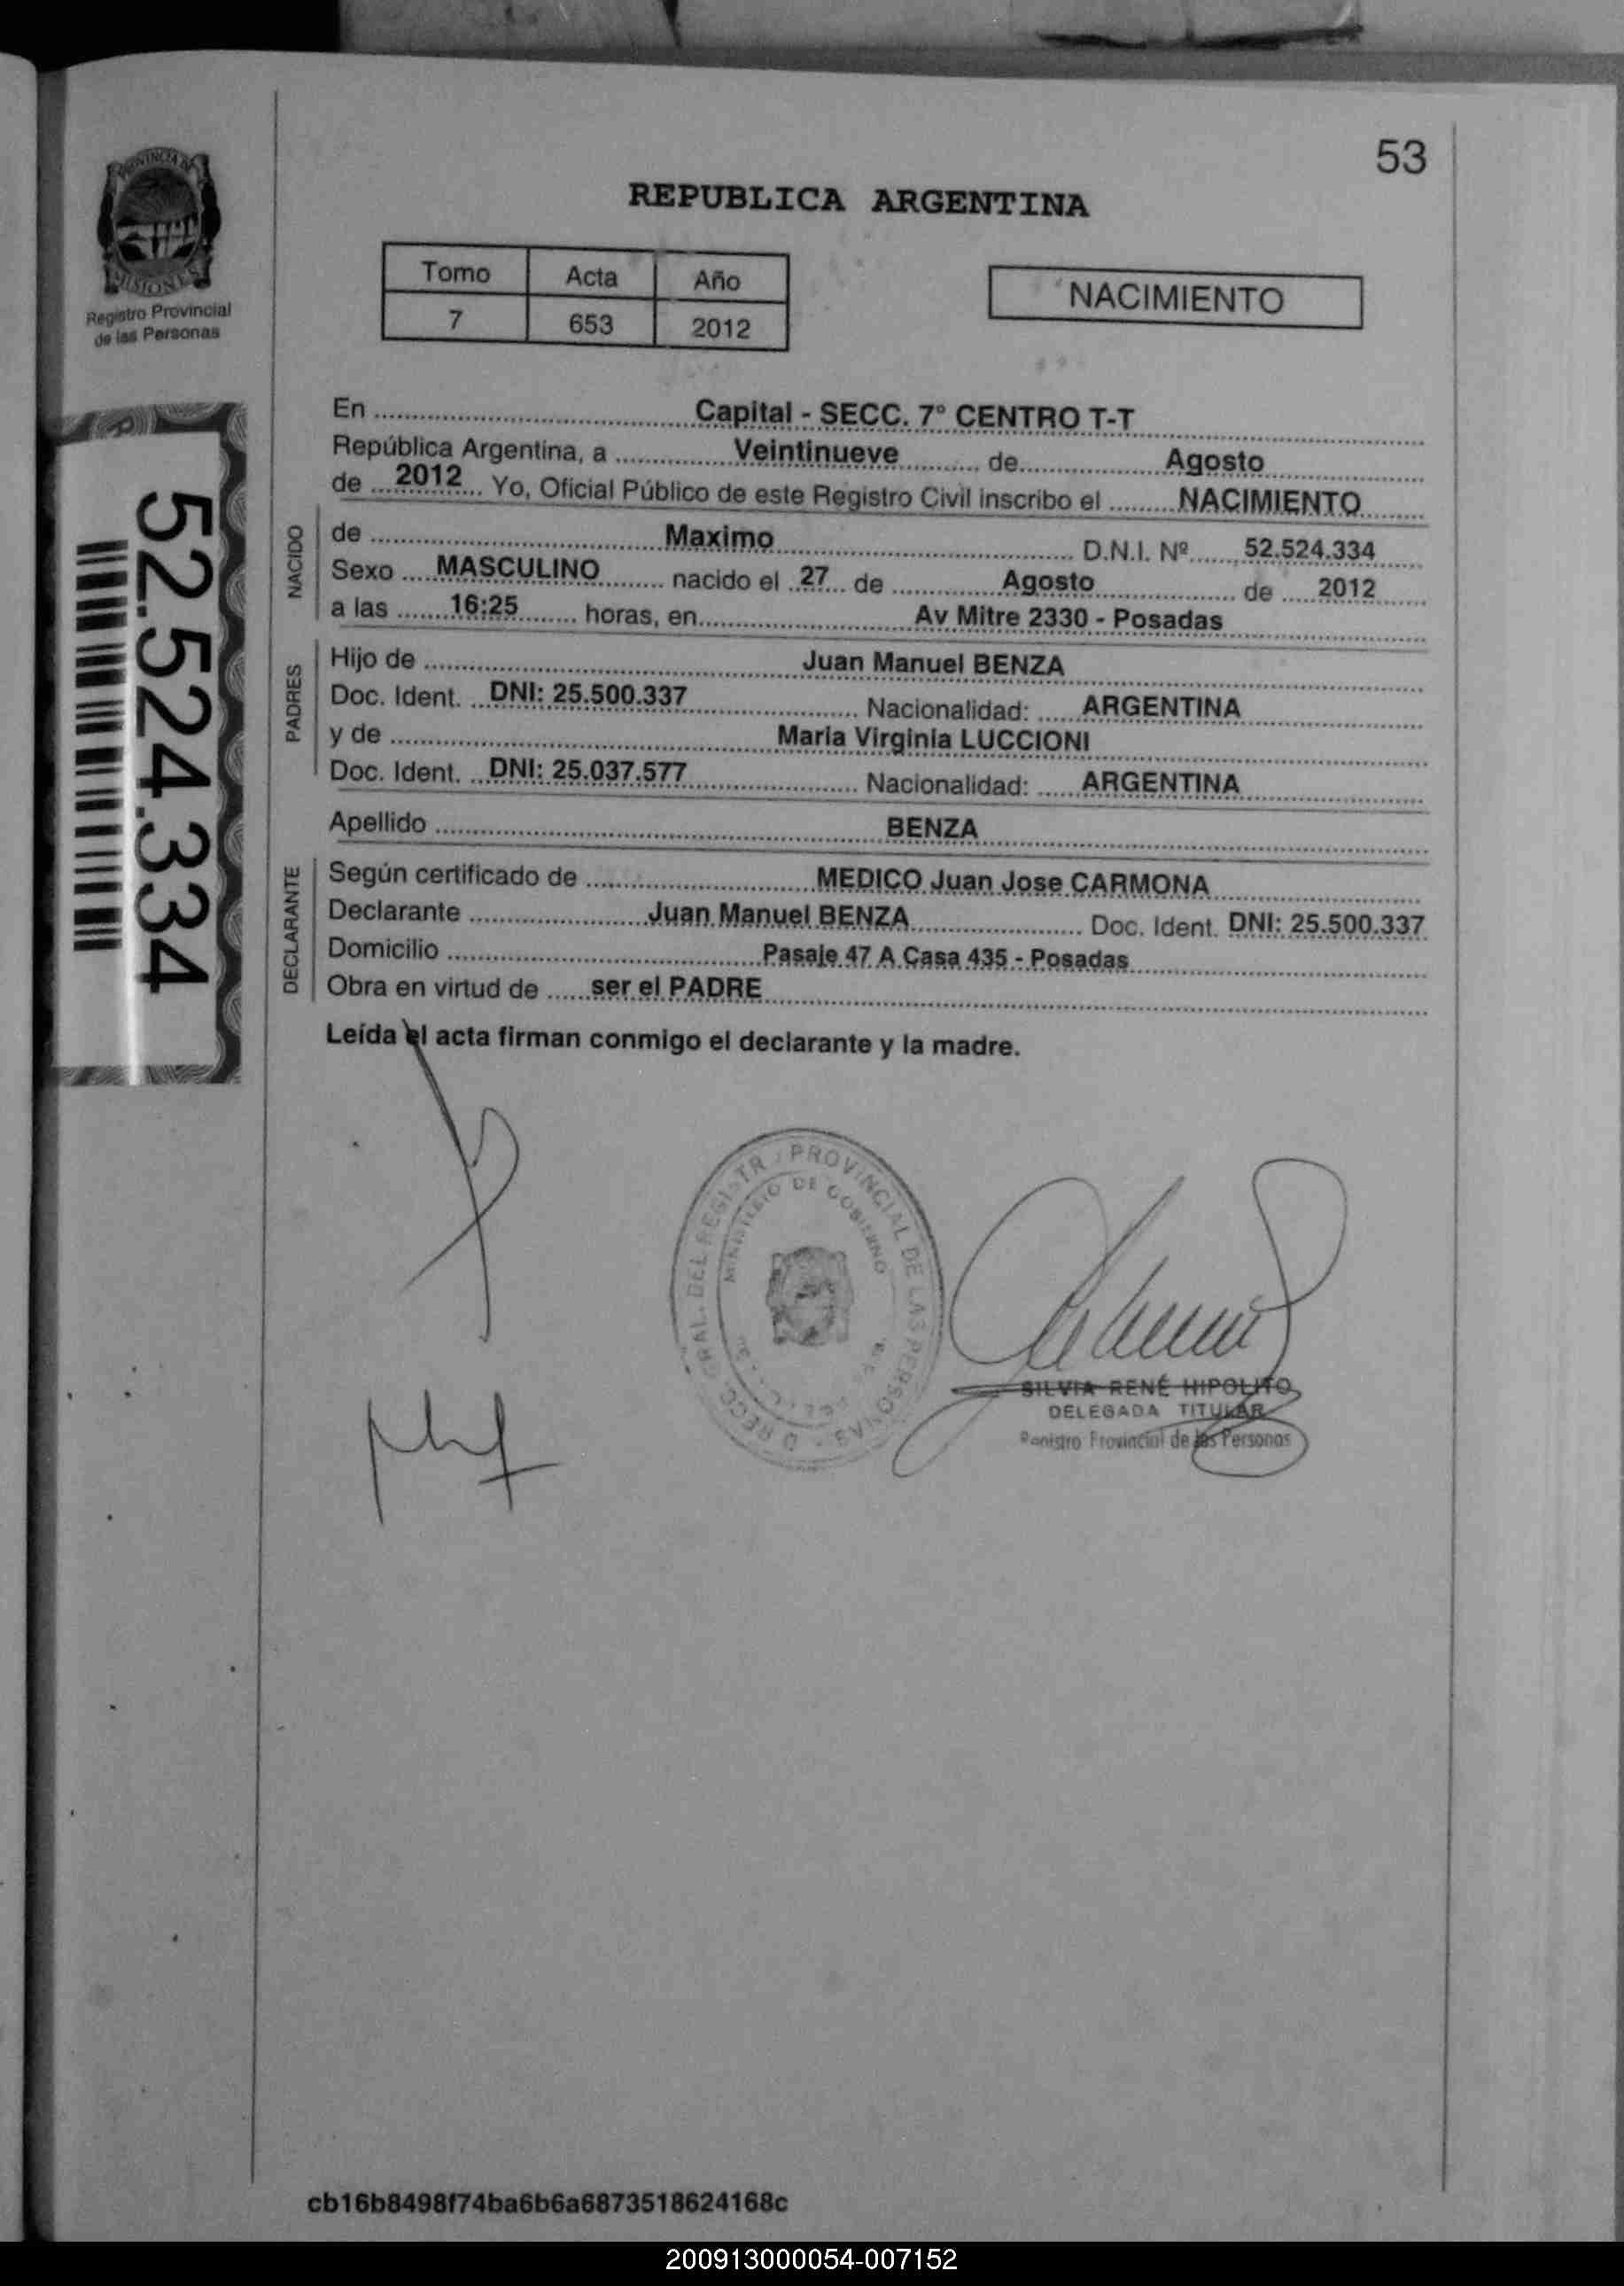 53
PROVINCIA DE
MISIONES
Registro Provincial
de las Personas
REPUBLICA ARGENTINA
Tomo Acta Año
7 653 2012
NACIMIENTO
52.524.334
En Capital - SECC. 7º CENTRO T-T
República Argentina, a Veintinueve de Agosto
de 2012 Yo, Oficial Público de este Registro Civil inscribo el NACIMIENTO
NACIDO
de Maximo D.N.I. Nº 52.524.334
Sexo MASCULINO nacido el 27 de Agosto de 2012
a las 16:25 horas, en Av Mitre 2330 - Posadas
PADRES
Hijo de Juan Manuel BENZA
Doc. Ident. DNI: 25.500.337 Nacionalidad: ARGENTINA
y de Maria Virginia LUCCIONI
Doc. Ident. DNI: 25.037.577 Nacionalidad: ARGENTINA
Apellido BENZA
DECLARANTE
Según certificado de MEDICO Juan Jose CARMONA
Declarante Juan Manuel BENZA Doc. Ident. DNI: 25.500.337
Domicilio Pasaje 47 A Casa 435 - Posadas
Obra en virtud de ser el PADRE
Leída el acta firman conmigo el declarante y la madre.
PROVINCIAL DE LAS PERSONAS
MINISTERIO DE GOBIERNO
SILVIA RENÉ HIPOLITO
DELEGADA TITULAR
Registro Provincial de las Personas
cb16b8498f74ba6b6a6873518624168c
200913000054-007152